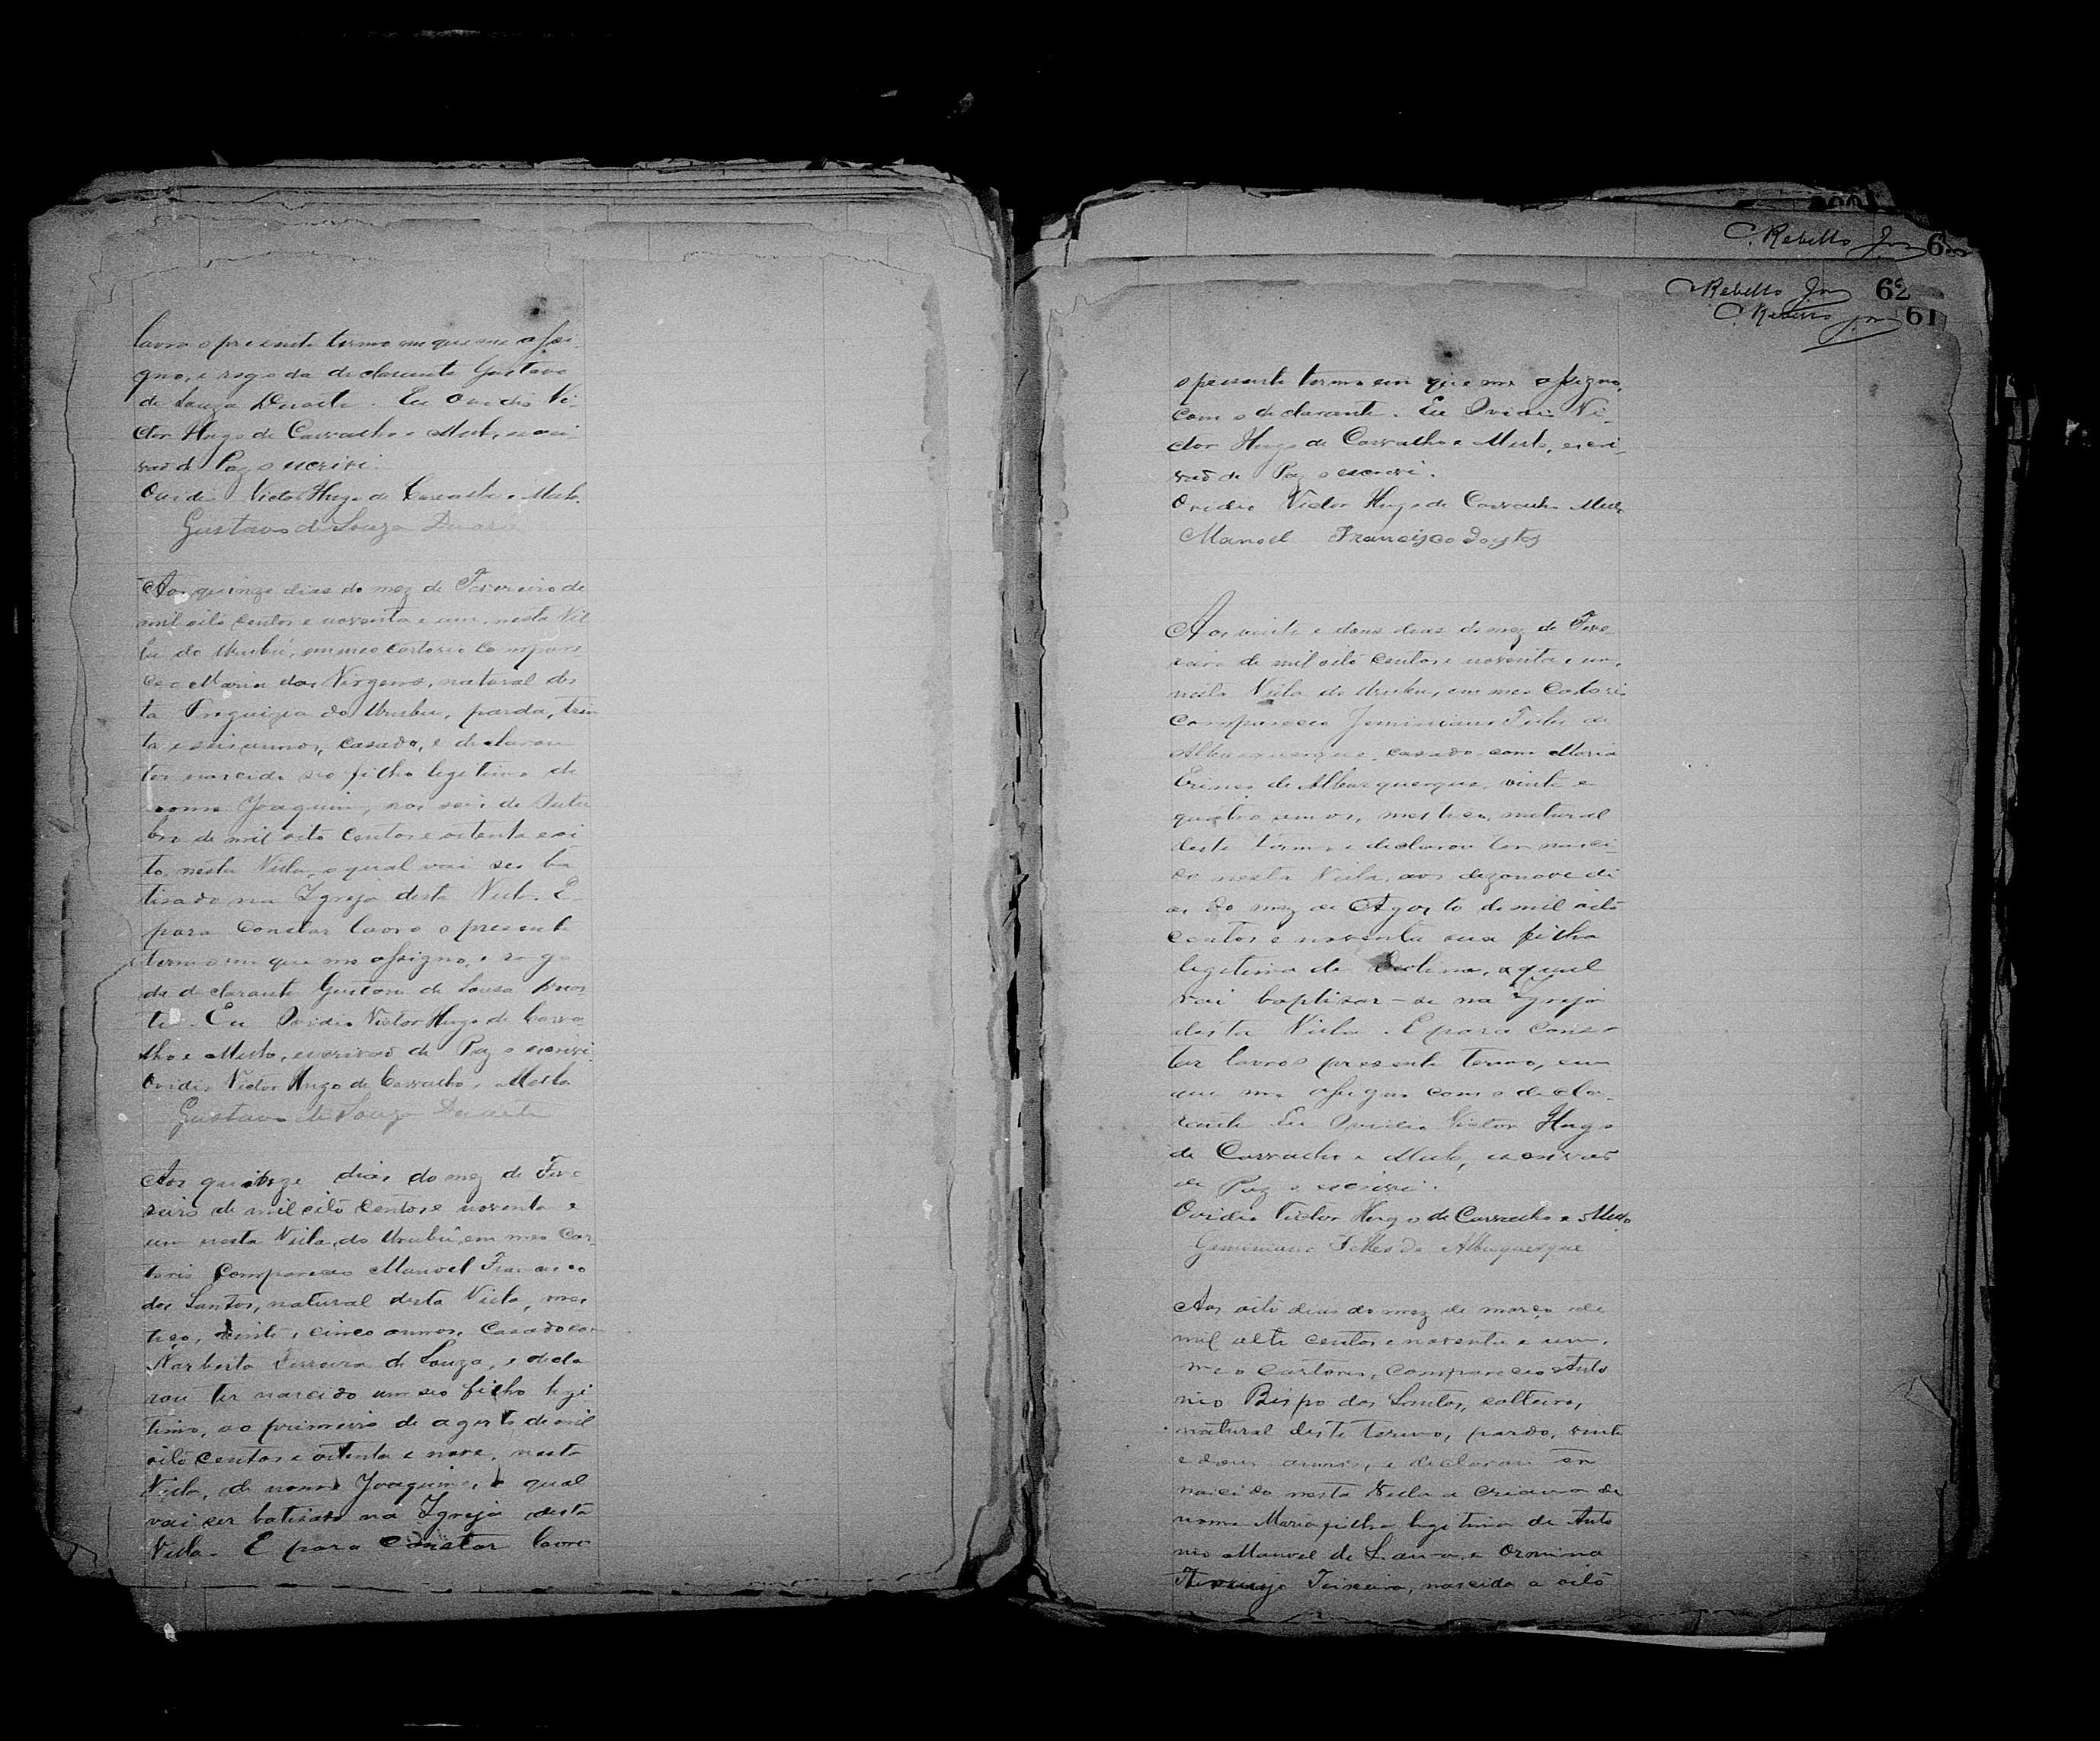 lavro o presente termo em que me assi-
gno, e rogo da declarante Gustavo
de Souza Duarte. Eu Ovidio Vi-
ctor Hugo de Carvalho e Mello, escri-
vaõ de Paz o escrivi.
Ovidio Victor Hugo de Carvalho e Mello.
Gustavo de Souza Duarte
Aos quinze dias do mez de Fevereiro de
mil oito centos e noventa e um, nesta Vil
la do Urubú, em meo Cartorio compare-
ceo Maria das Virgens, natural des
ta Freguizia do Urubu, parda, trin
ta e seis annos, casada, e declarou
ter nascido seo filho legitimo de
nome Joaquim, aos seis de Outu
bro de mil oito centos e oitenta e oi
to, nesta Villa, o qual vai ser ba
tisado na Igreja desta Villa. E
para constar lavro o presente
termo em que me assigno, e rogo
da declarante Gustavo de Souza Duar-
te. Eu Ovidio Victor Hugo de Carva-
lho e Mello, escrivaõ de Paz o escrivi.
Ovidio Victor Hugo de Carvalho e Mello
Gustavo de Souza Duarte
Aos quinze dias do mez de Feve
reiro de mil oito centos e noventa e
um nesta Villa do Urubú, em meo Car-
torio compareceo Manoel Francisco
dos Santos, natural desta Villa, mes
tiço, vinte e cinco annos, casado com
Narberta Ferreira de Souza, e decla
rou ter nascido um seo filho legi-
timo, ao primeiro de agosto de mil
oito centos e oitenta e nove, nesta
Villa, de nome Joaquim, o qual
vai ser batisado na Igreja desta
Villa. E para constar lavro
C. Rebello Jor 6
Rebello Jor 62
C. Rebello Jor 61
o presente termo em que me assigno,
com o declarante. Eu Ovidio Vi-
ctor Hugo de Carvalho e Mello, escri-
vaõ de Paz o escrevi.
Ovidio Victor Hugo de Carvalho Mello
Manoel Francisco dos stos
Aos vinte e dous dias do mez de Feve
reiro de mil oito centos e noventa e um,
nesta Villa do Urubu, em meo Catorio
compareceo Jeminiano Telles de
Albuquerque, casado com Maria
de Albuquerque, vinte e
quatro annos, mestiço, natural
deste termo e declarou ter nasci-
do nesta Villa, aos dezanove di
as do mez de Agosto de mil oito
centos e noventa sua filha
legitima de a qual
vai baptisar-se na Igreja
desta Villa. E para cons-
tar lavro o presente termo, em
que me assigno com o decla-
rante Eu Ovidio Victor Hugo
de Carvalho e Mello, escrivaõ
de Paz o escrivi.
Ovidio Victor Hugo de Carvalho e Mello
Geminiano Telles de Albuquerque
Aos oito dias do mez de março de
mil oito centos e noventa e um,
meo cartorio, compareceo Anto
nio Bispo dos Santos, solteiro,
natural deste termo, pardo, vinte
e dous annos, e declarou ter
nascido nesta Villa a criança de
nome Maria filha legitima de Anto
nio Manoel de e
Araujo Teixeira, nascida a oito